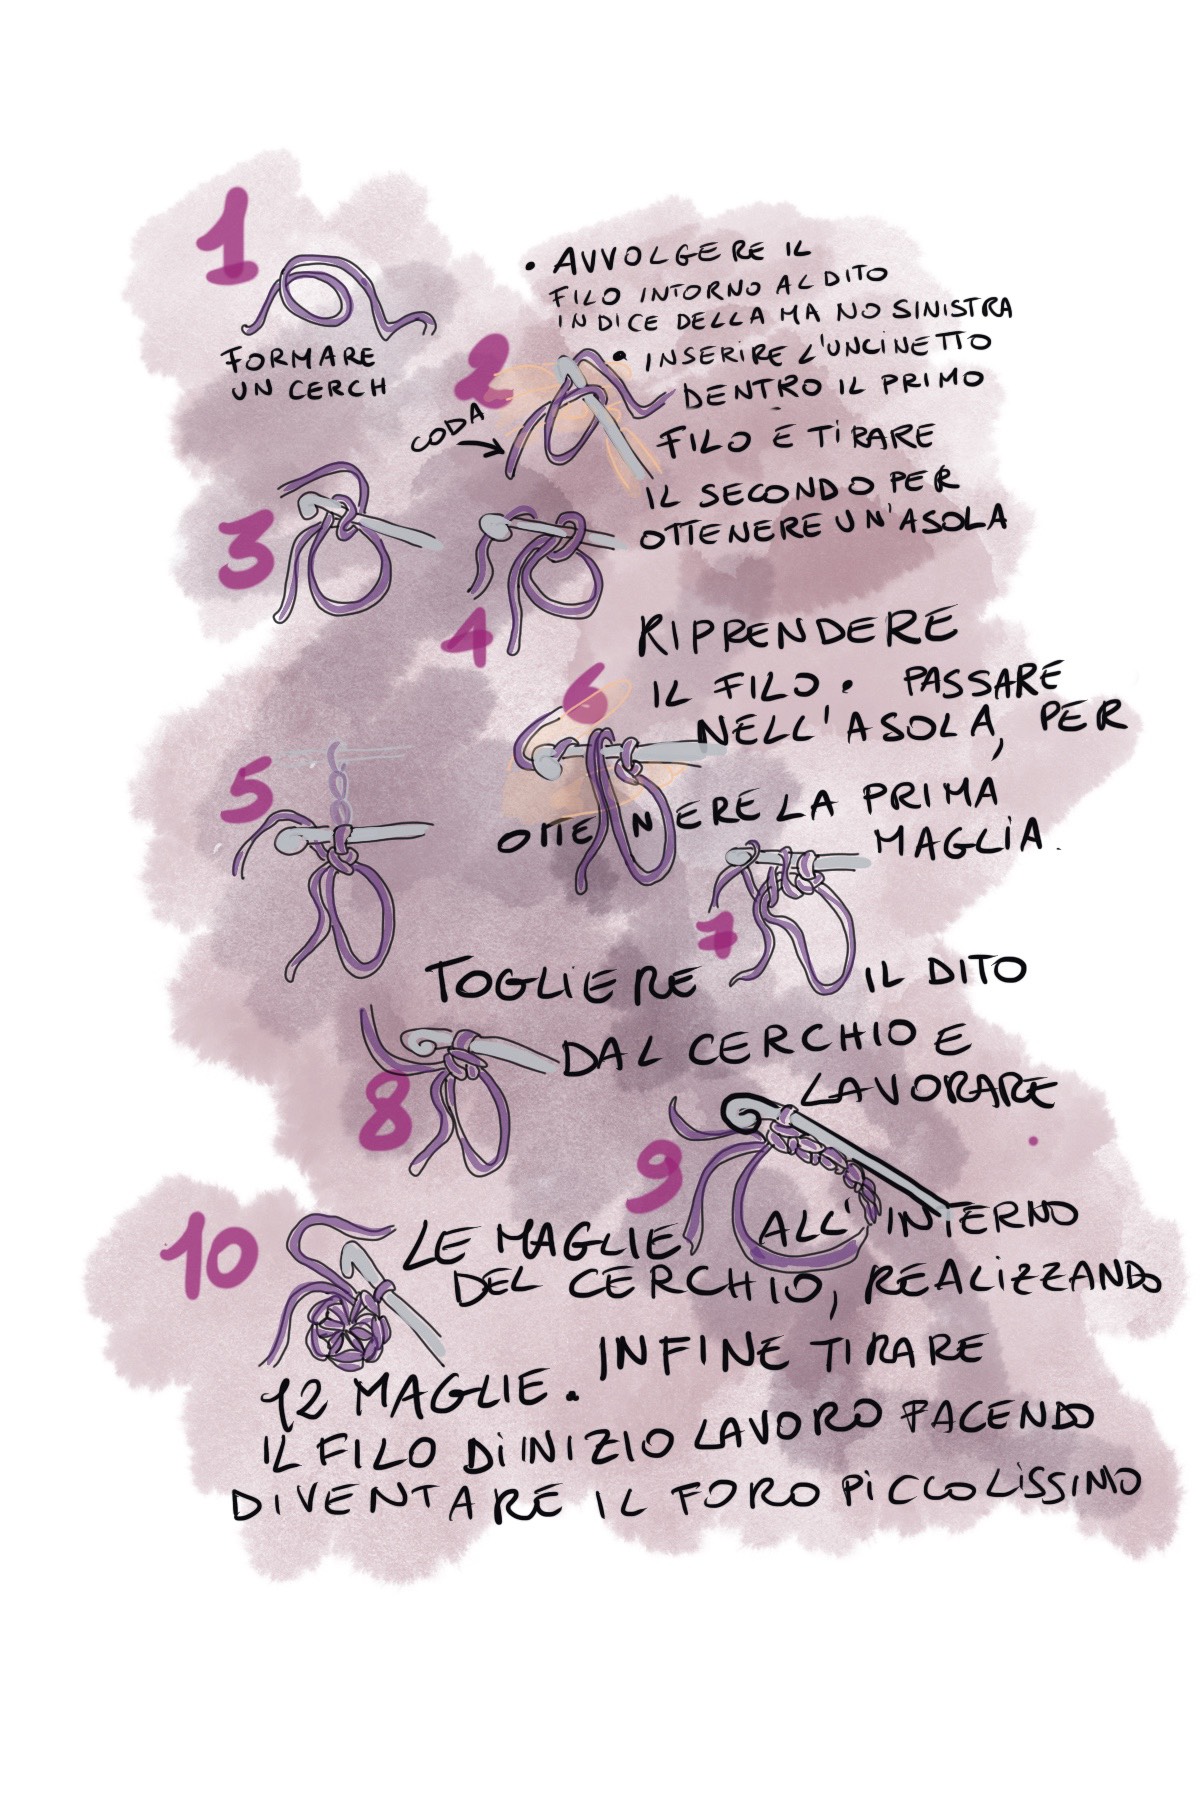 1
FORMARE
UN CERCH
• AVVOLGERE IL
FILO INTORNO AL DITO
INDICE DELLA MA NO SINISTRA
2
• INSERIRE L'UNCINETTO
DENTRO IL PRIMO
CODA
FILO E TIRARE
IL SECONDO PER
OTTENERE UN'ASOLA
3
4
RIPRENDERE
6
IL FILO. PASSARE
NELL'ASOLA, PER
5
OTTENERE LA PRIMA
MAGLIA.
7
TOGLIERE IL DITO
8
DAL CERCHIO E
LAVORARE
9
10
LE MAGLIE ALL'INTERNO
DEL CERCHIO, REALIZZANDO
12 MAGLIE. INFINE TIRARE
IL FILO DI INIZIO LAVORO FACENDO
DIVENTARE IL FORO PICCOLISSIMO